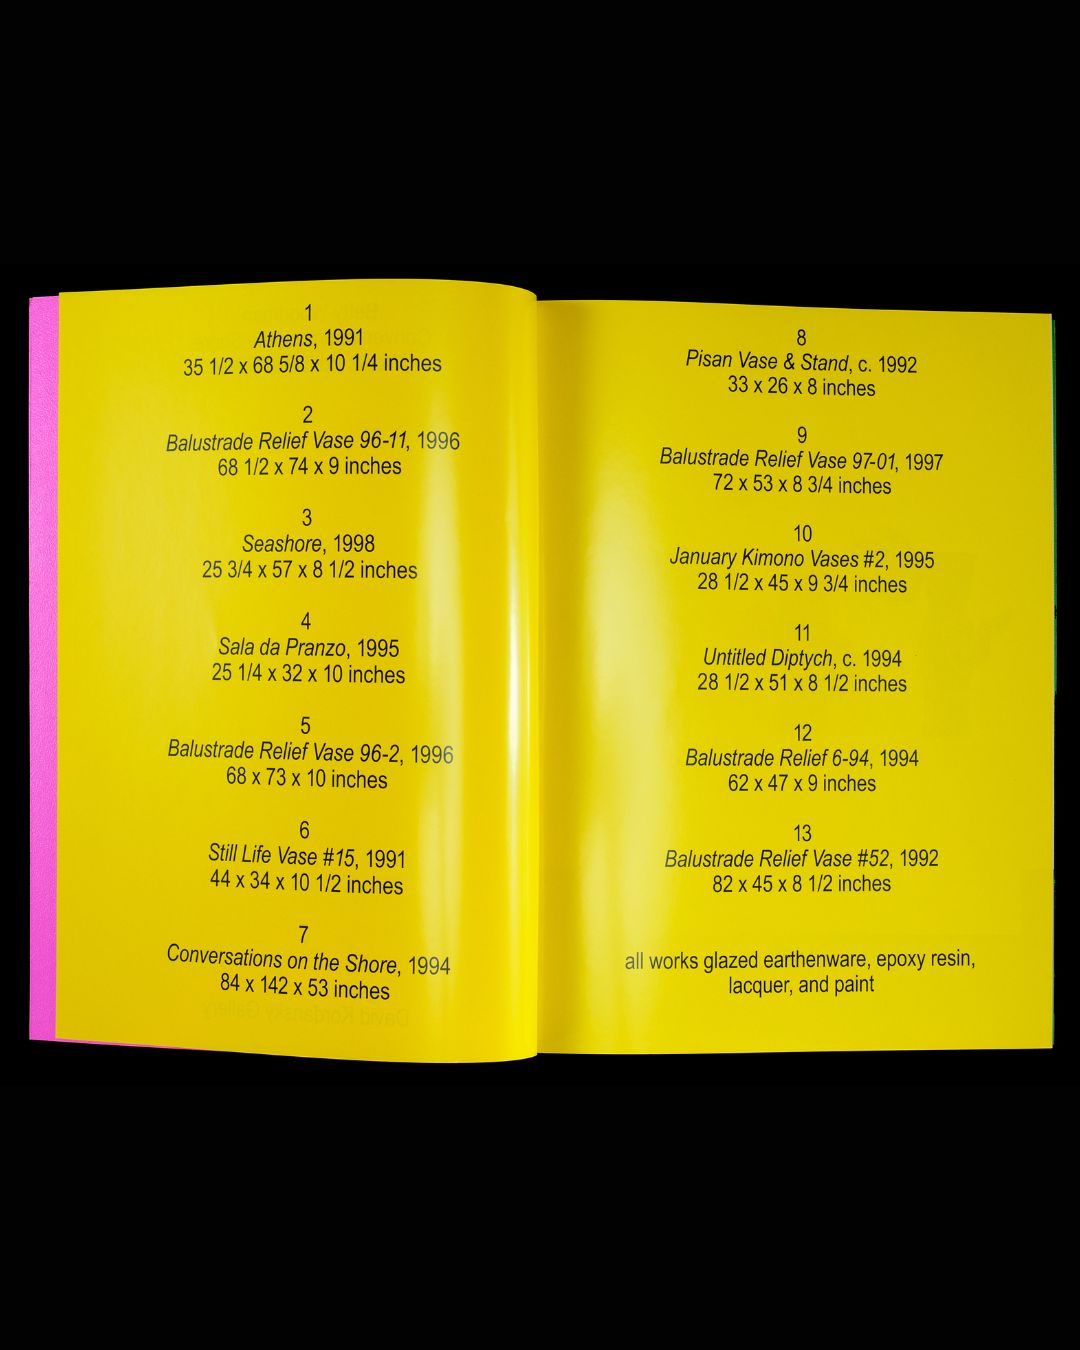 1
Athens, 1991
35 1/2 x 68 5/8 x 10 1/4 inches
2
Balustrade Relief Vase 96-11, 1996
68 1/2 x 74 x 9 inches
3
Seashore, 1998
25 3/4 x 57 x 8 1/2 inches
4
Sala da Pranzo, 1995
25 1/4 x 32 x 10 inches
5
Balustrade Relief Vase 96-2, 1996
68 x 73 x 10 inches
6
Still Life Vase #15, 1991
44 x 34 x 10 1/2 inches
7
Conversations on the Shore, 1994
84 x 142 x 53 inches
David Kordansky Gallery
8
Pisan Vase & Stand, c. 1992
33 x 26 x 8 inches
9
Balustrade Relief Vase 97-01, 1997
72 x 53 x 8 3/4 inches
10
January Kimono Vases #2, 1995
28 1/2 x 45 x 9 3/4 inches
11
Untitled Diptych, c. 1994
28 1/2 x 51 x 8 1/2 inches
12
Balustrade Relief 6-94, 1994
62 x 47 x 9 inches
13
Balustrade Relief Vase #52, 1992
82 x 45 x 8 1/2 inches
all works glazed earthenware, epoxy resin,
lacquer, and paint